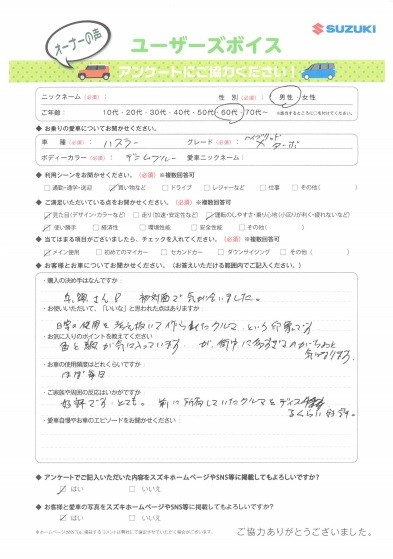 オーナーの声
ユーザーズボイス
SUZUKI
アンケートにご協力ください!
ニックネーム（必須）： 性 別（必須）： 男性・女性
ご年齢： 10代・20代・30代・40代・50代・60代・70代～ ※該当するところに○を付けてください。
◆ お乗りの愛車についてお聞かせください。
車 種（必須）： ハスラー グレード（必須）： ハイブリッド X ターボ
ボディーカラー（必須）： デニムブルー 愛車ニックネーム：
◆ 利用シーンをお聞かせください。（必須）※複数回答可
□通勤・通学・送迎 ☑買い物など □ドライブ □レジャーなど □仕事 □その他（ ）
◆ ご満足いただいている点をお聞かせください。（必須）※複数回答可
☑見た目（デザイン・カラーなど） □走り（加速・安定性など） ☑運転のしやすさ・乗り心地（小回りが利く・疲れないなど）
☑使い勝手 □経済性 □環境性能 □安全性能 □その他（ ）
◆ 当てはまる項目がございましたら、チェックを入れてください。（必須）※複数回答可
☑メイン使用 □初めてのマイカー □セカンドカー □ダウンサイジング □その他（ ）
◆ お客様とお車についてお聞かせください。（お答えいただける範囲内でご記入ください。）
・購入の決め手はなんですか
さん 初対面で気が合いました。
・お使いいただいて、「いいな」と思われた点はありますか
日常の使用を考え抜いて作られたクルマ、という印象です
・お気に入りのポイントを教えてください
色と顔が気に入っています が、街中に多すぎるのがちょっと
気になります。
・お車の使用頻度はどれくらいですか
ほぼ毎日
・ご家族や周囲の反応はいかがですか
好評です。とても。前に所有していたクルマをディスる
くらい好評。
・愛車自慢やお車のエピソードをお聞かせください
◆ アンケートでご記入いただいた内容をスズキホームページやSNS等に掲載してもよろしいですか?
☑ はい □ いいえ
◆ お客様と愛車の写真をスズキホームページやSNS等に掲載してもよろしいですか?
☑ はい □ いいえ
ご協力ありがとうございました。